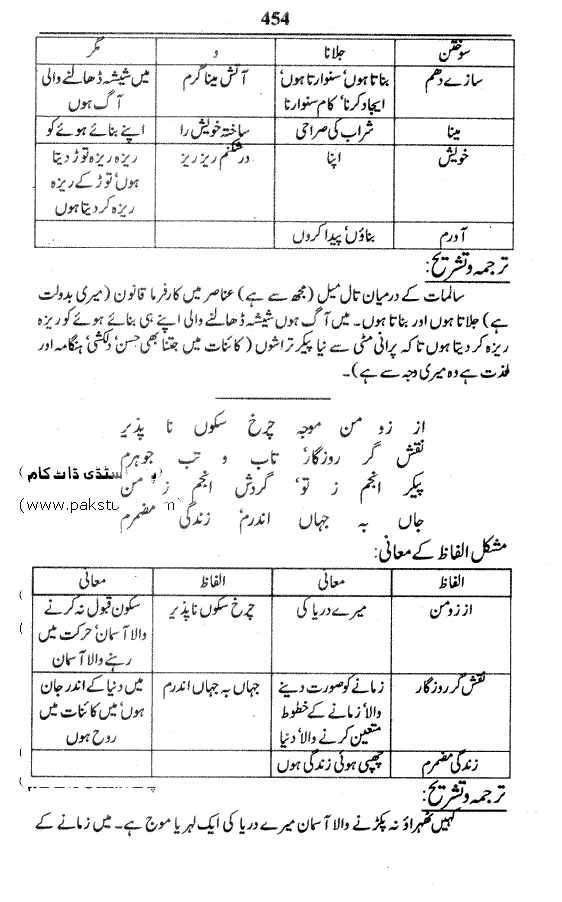 454
سوختن جلانا و مگر
سازے دھم بناتا ہوں' سنوارتا ہوں' آتش مینا گرم میں شیشہ ڈھالنے والی
ایجاد کرنا' کام سنوارنا آگ ہوں
مینا شراب کی صراحی ساختہ خویش را اپنے بنائے ہوئے کو
خویش اپنا در شکنم ریز ریز ریزہ ریزہ توڑ دیتا
ہوں' توڑ کے ریزہ
ریزہ کر دیتا ہوں
آورم بناؤں' پیدا کروں
ترجمہ و تشریح:
سالمات کے درمیان تال میل (مجھ سے ہے) عناصر میں کارفرما قانون (میری بدولت
ہے) جلاتا ہوں اور بناتا ہوں۔ میں آگ ہوں شیشہ ڈھالنے والی اپنے ہی بنائے ہوئے کو ریزہ
ریزہ کر دیتا ہوں تا کہ پرانی مٹی سے نیا پیکر تراشوں (کائنات میں جتنا بھی حسن' دلکشی' ہنگامہ اور
لذت ہے وہ میری وجہ سے ہے)۔
از زو من موجہ چرخ سکوں نا پذیر
نقش گر روزگار' تاب و تب جوہرم
سٹڈی ڈاٹ کام
پیکر انجم ز تو' گردش انجم ز من
(www.pakstu m)
جاں بہ جہاں اندرم' زندگی مضمرم
مشکل الفاظ کے معانی:
الفاظ معانی الفاظ معانی
از زو من میرے دریا کی چرخ سکوں ناپذیر سکون قبول نہ کرنے
والا آسمان' حرکت میں
رہنے والا آسمان
نقش گر روزگار زمانے کو صورت دینے جہاں بہ جہاں اندرم میں دنیا کے اندر جان
والا' زمانے کے خطوط ہوں' میں کائنات میں
متعین کرنے والا' دنیا روح ہوں
زندگی مضمرم چھپی ہوئی زندگی ہوں
ترجمہ و تشریح:
کہیں ٹھہراؤ نہ پکڑنے والا آسمان میرے دریا کی ایک لہر یا موج ہے۔ میں زمانے کے